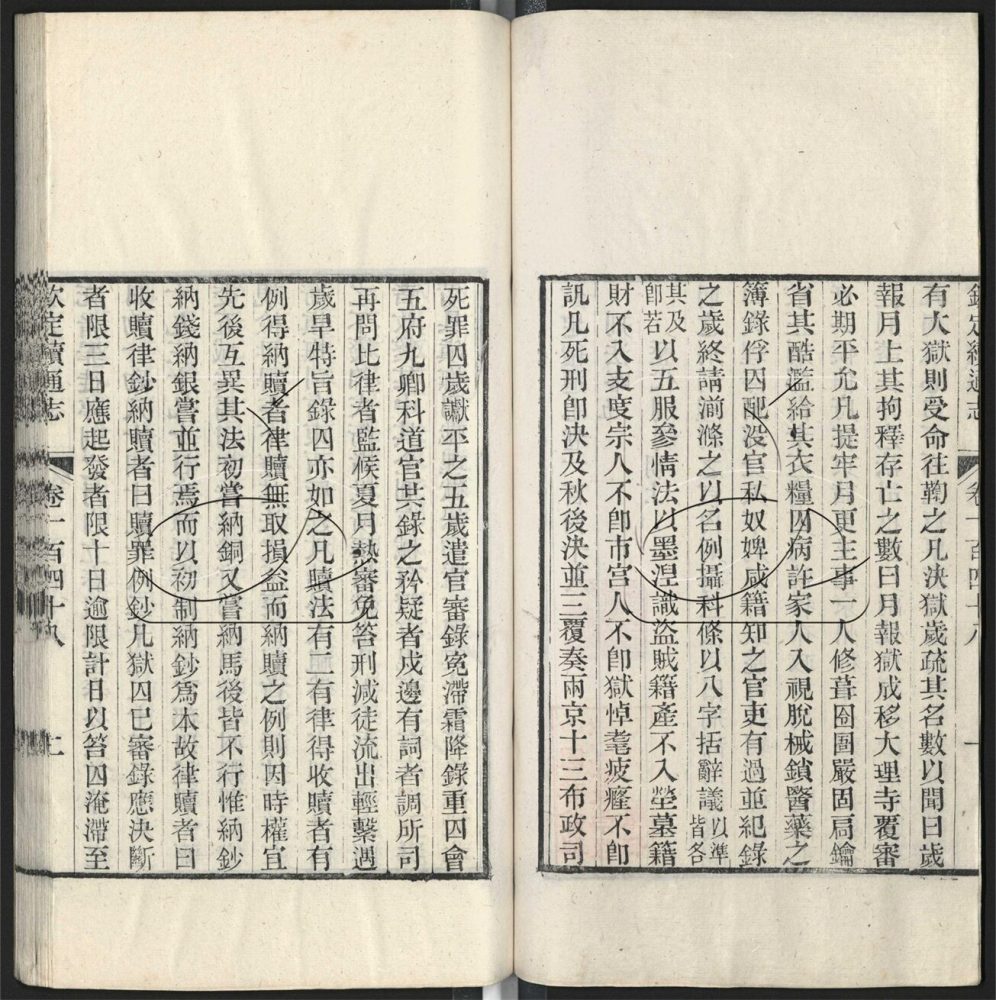 欽定續通志 卷一百四十八
有大獄則受命往鞫之凡決獄歲疏其名數以聞曰歲
報月上其拘釋存亡之數曰月報獄成移大理寺覆審
必期平允凡提牢月更主事一人修葺囹圄嚴固扃鑰
省其酷濫給其衣糧囚病許家人入視脫械鎖醫藥之
簿錄俘囚配沒官私奴婢咸籍知之官吏有過並紀錄
之歲終請湔滌之以名例攝科條以八字括辭議以準皆各
其及即若以五服參情法以墨涅識盜賊籍產不入塋墓籍
財不入支度宗人不卽市宮人不卽獄悼耄疲癃不卽
訊凡死刑卽決及秋後決並三覆奏兩京十三布政司
死罪囚歲讞平之五歲遣官審錄冤滯霜降錄重囚會
五府九卿科道官共錄之矜疑者戍邊有詞者調所司
再問比律者監候夏月熱審免笞刑減徒流出輕繫遇
歲旱特旨錄囚亦如之凡贖法有二有律得收贖者有
例得納贖者律贖無取損益而納贖之例則因時權宜
先後互異其法初嘗納銅又嘗納馬後皆不行惟納鈔
納錢納銀嘗並行焉而以初制納鈔爲本故律贖者曰
收贖律鈔納贖者曰贖罪例鈔凡獄囚已審錄應決斷
者限三日應起發者限十日逾限計日以笞囚淹滯至
欽定續通志 卷一百四十八